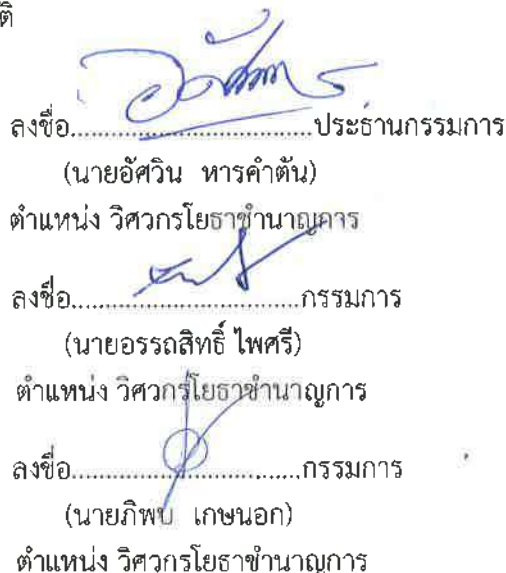 ติ
ลงชื่อ................................ประธานกรรมการ
(นายอัศวิน หารคำตัน)
ตำแหน่ง วิศวกรโยธาชำนาญการ
ลงชื่อ................................กรรมการ
(นายอรรถสิทธิ์ ไพศรี)
ตำแหน่ง วิศวกรโยธาชำนาญการ
ลงชื่อ................................กรรมการ
(นายภิพบ เกษนอก)
ตำแหน่ง วิศวกรโยธาชำนาญการ